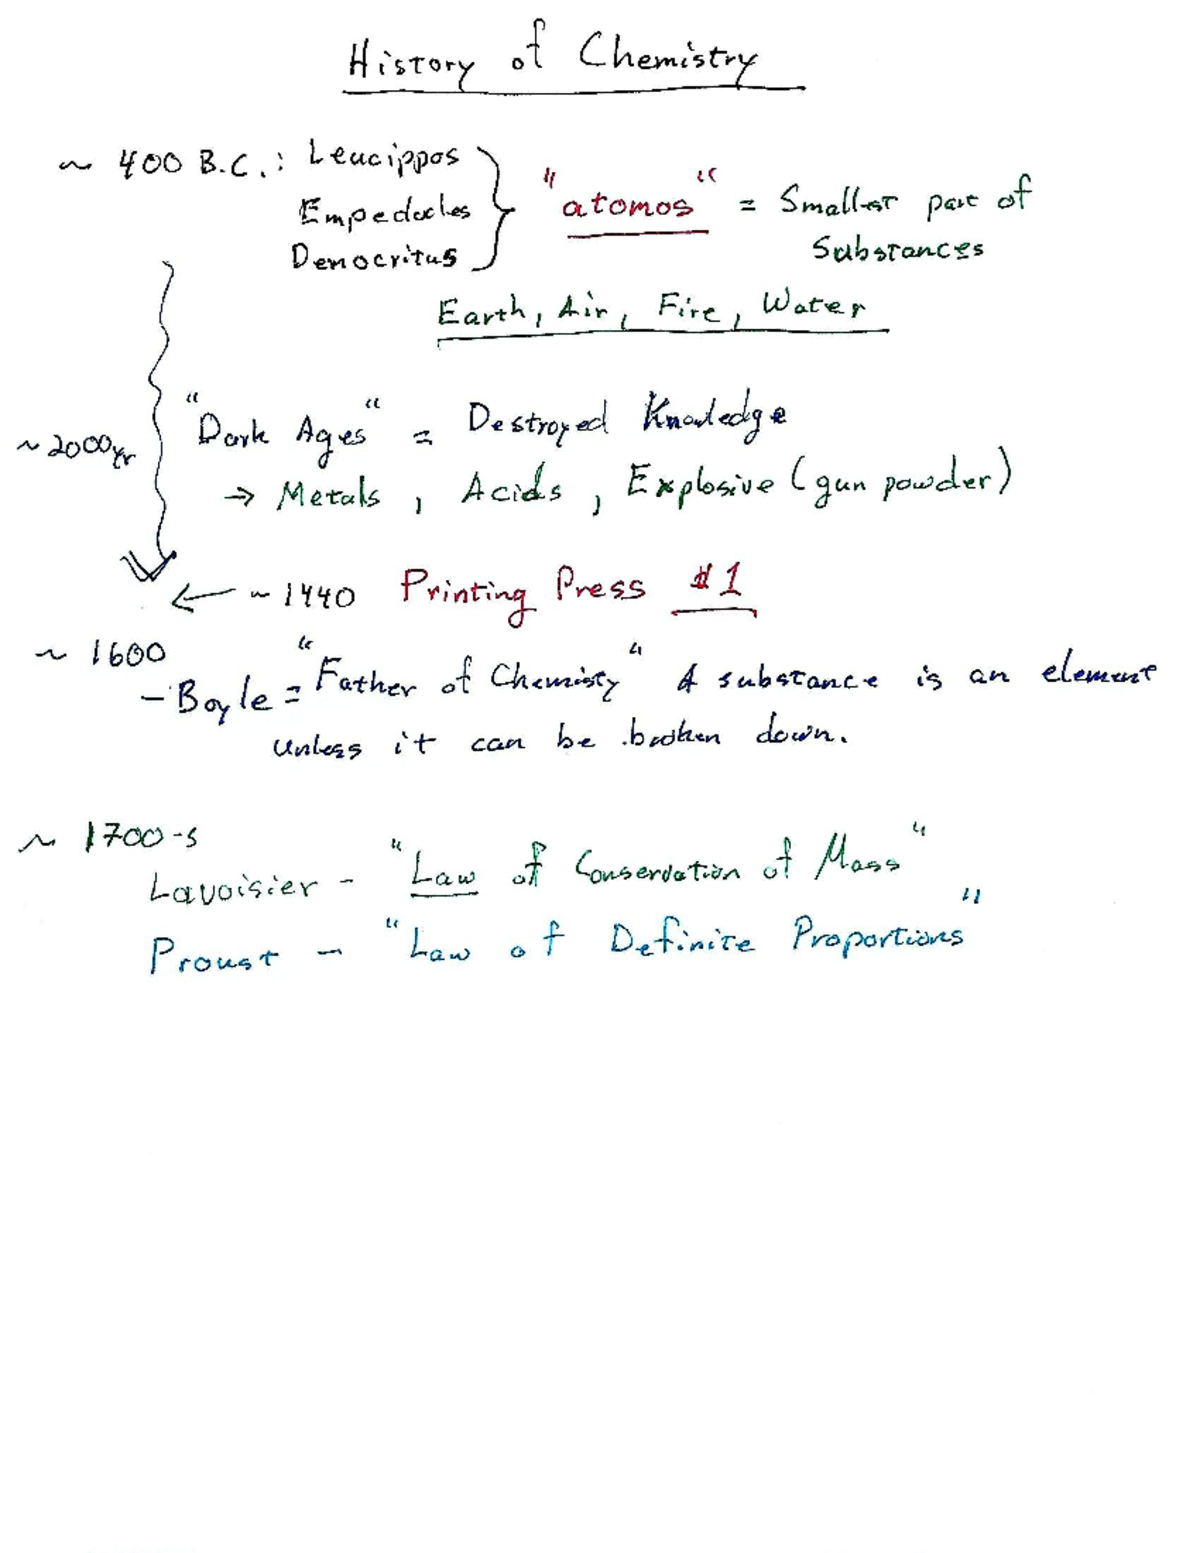 History of Chemistry
~ 400 B.C.: Leucippos
Empedocles
Democritus
"atomos" = Smallest part of
Substances
Earth, Air, Fire, Water
~2000yr
"Dark Ages" = Destroyed Knowledge
→ Metals, Acids, Explosive (gun powder)
← ~ 1440 Printing Press #1
~ 1600
- Boyle = "Father of Chemisty" A substance is an element
unless it can be broken down.
~ 1700-s
Lavoisier - "Law of Conservation of Mass"
Proust - "Law of Definite Proportions"